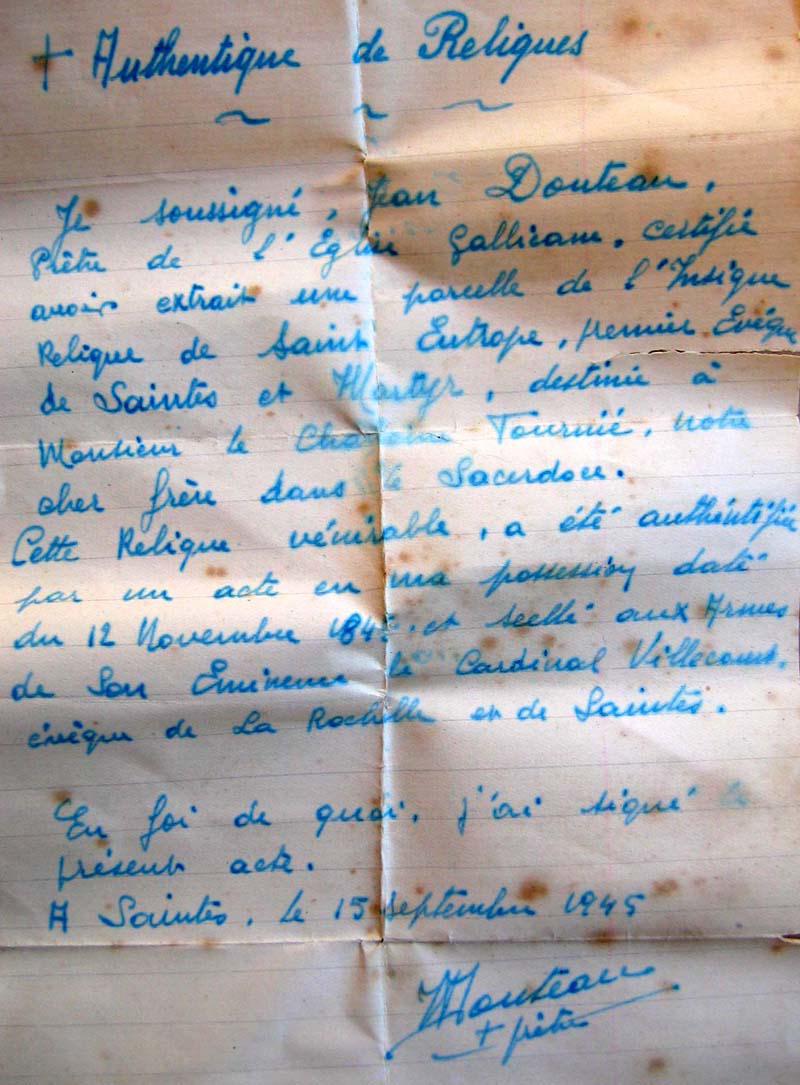 + Authentique de Reliques
~ ~ ~
Je soussigné, Jean Douteau,
Prêtre de l'Église Gallicane, certifie
avoir extrait une parcelle de l'Insigne
Relique de Saint Eutrope, premier Évêque
de Saintes et Martyr, destinée à
Monsieur le Chanoine Tournié, notre
cher frère dans le Sacerdoce.
Cette Relique vénérable, a été authentifiée
par un acte en ma possession daté
du 12 Novembre et scellé aux Armes
de Son Éminence le Cardinal Villecourt,
évêque de La Rochelle et de Saintes.
En foi de quoi, j'ai signé le
présent acte.
A Saintes, le 15 Septembre 1945
Douteau
+ prêtre